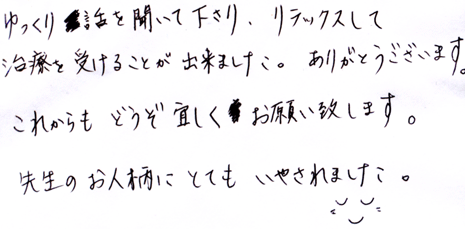 ゆっくり話を聞いて下さり、リラックスして
治療を受けることが出来ました。ありがとうございます。
これからもどうぞ宜しくお願い致します。
先生のお人柄にとてもいやされました。